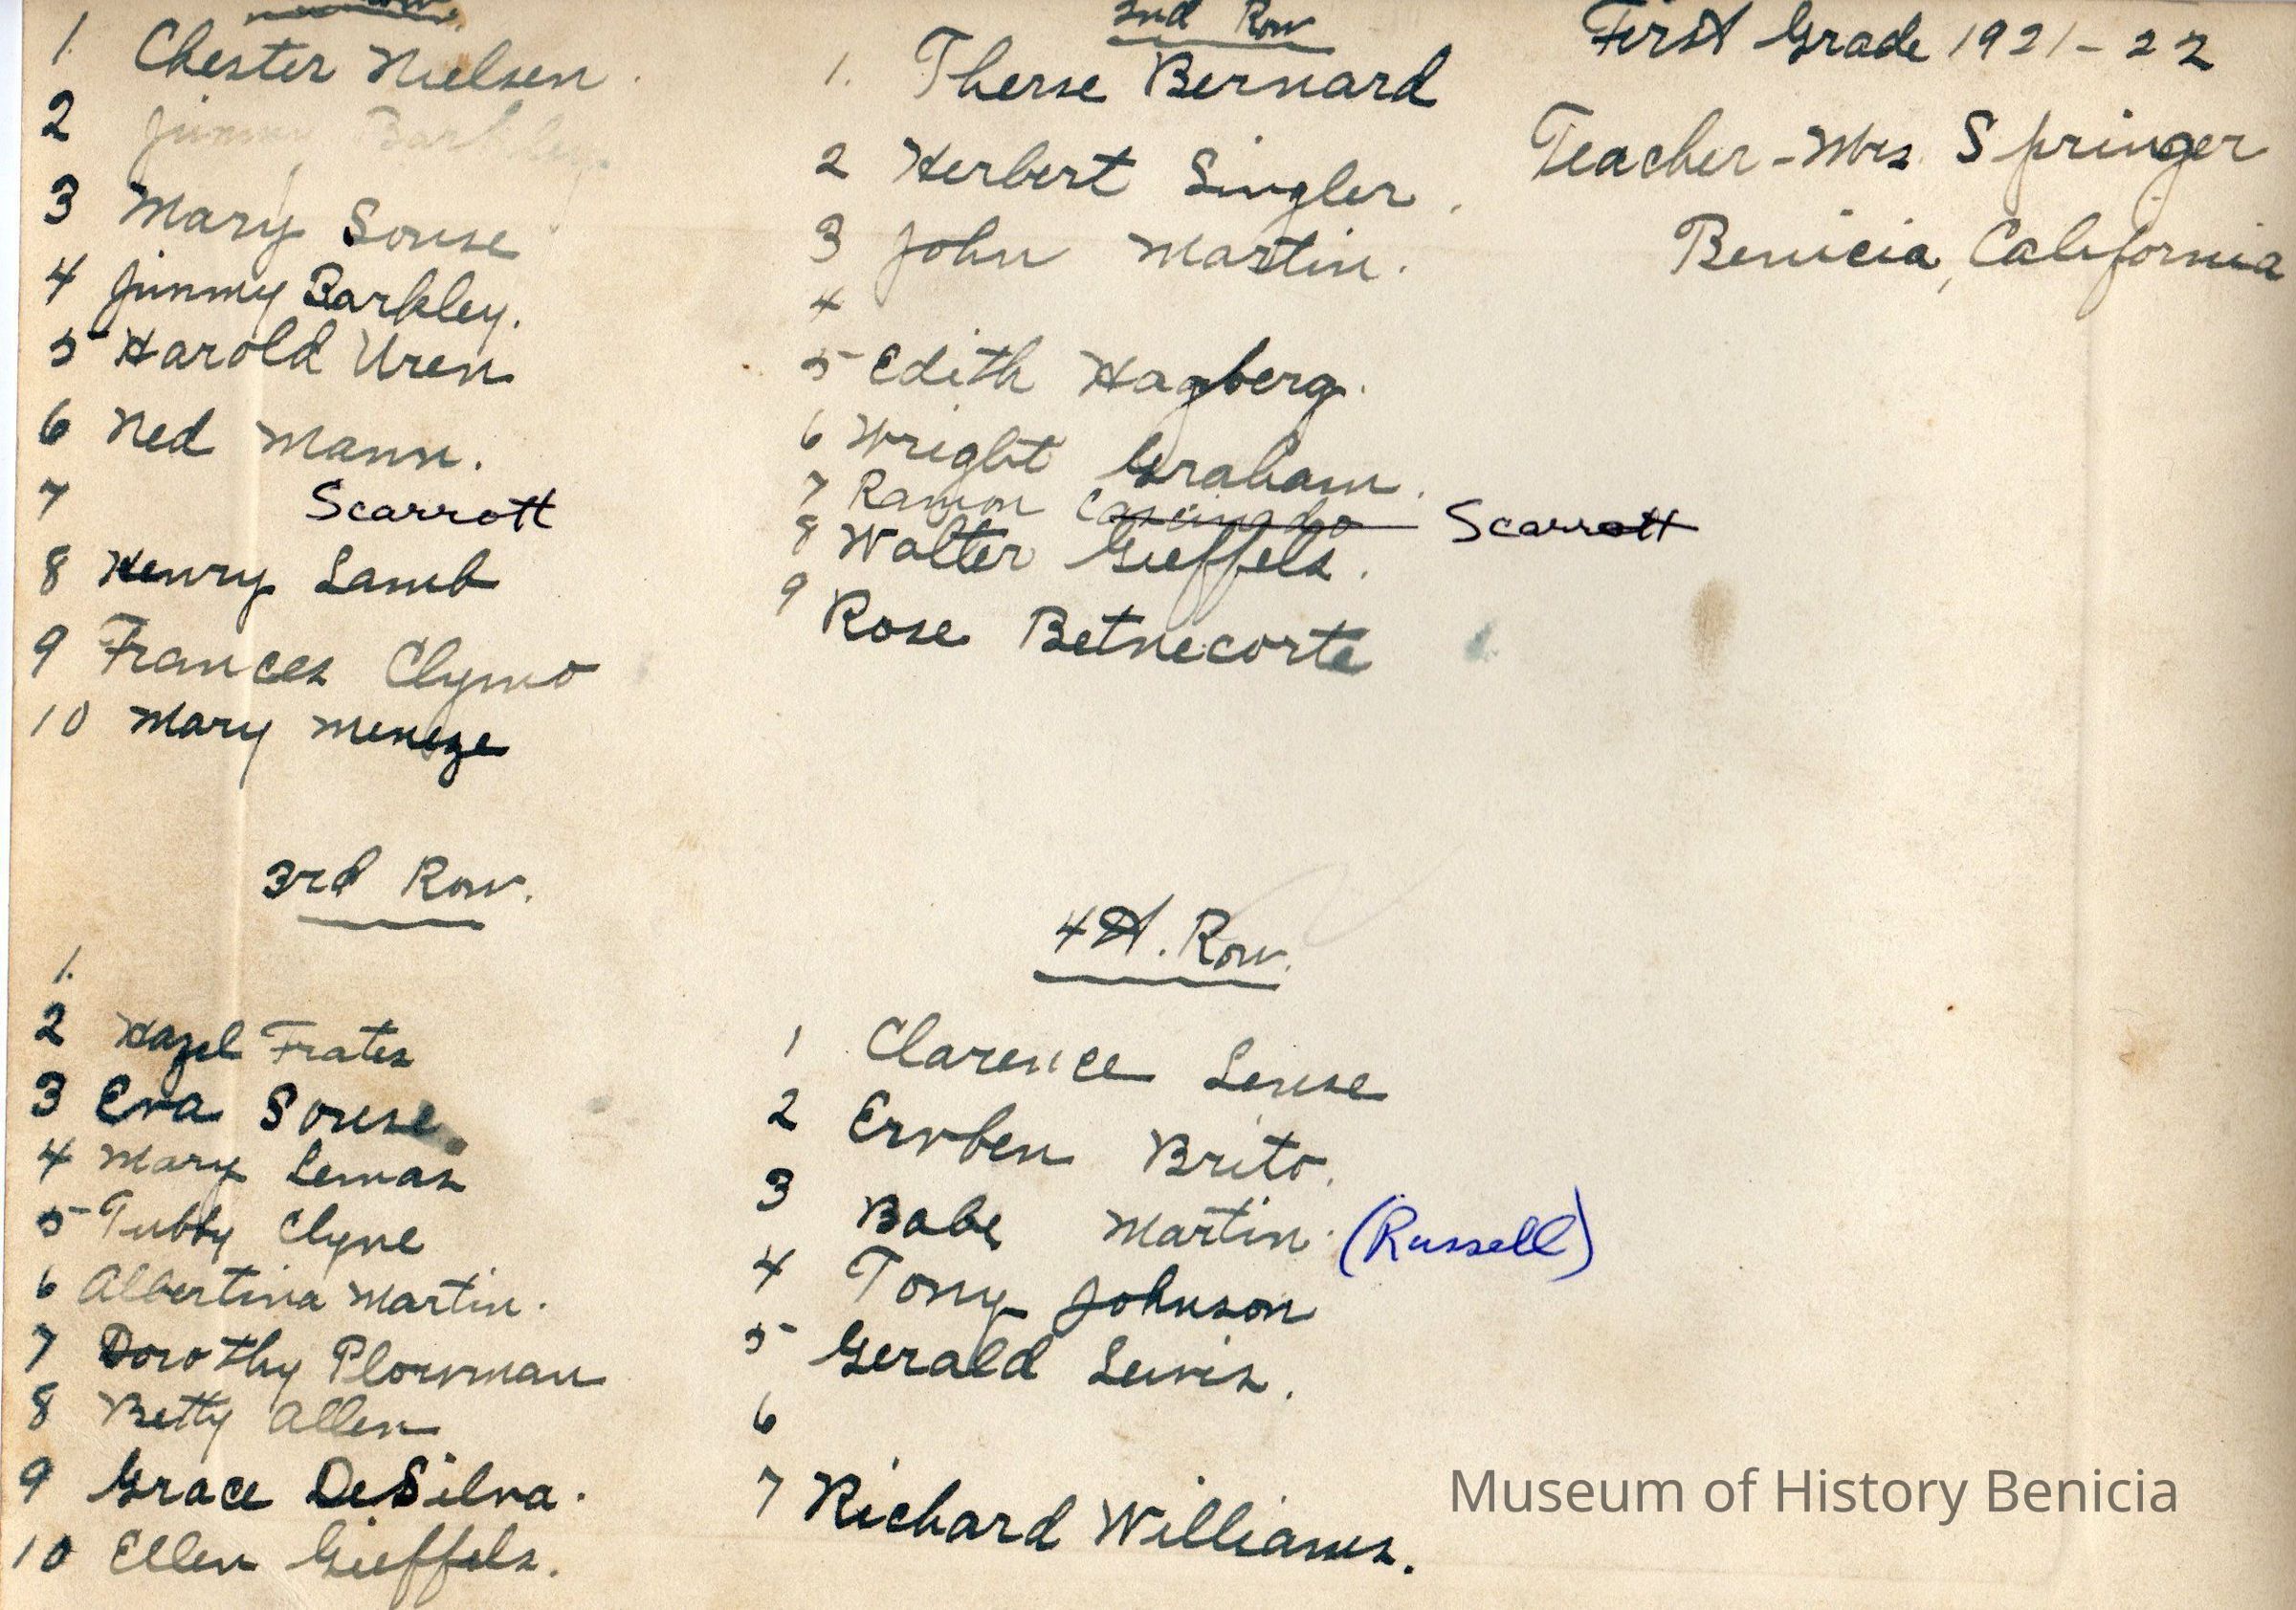 Row.
1. Chester Nielsen.
2 Jimmy Barkley
3 Mary Souse
4 Jimmy Barkley.
5 Harold Uren
6 Ned Mann.
7 Scarrott
8 Henry Lamb
9 Frances Clymo
10 Mary Meneze
2nd Row
1. Therse Bernard
2 Herbert Singler.
3 John Martin.
4
5 Edith Hagberg.
6 Wright Graham.
7 Ramon Scarrott
8 Walter Gieffels.
9 Rose Betnecorte
First Grade 1921-22
Teacher - Mrs. Springer
Benicia, California
3rd Row.
1.
2 Hazel Frates
3 Eva Souse.
4 Mary Lemas
5 Tubby Clyne
6 Albertina Martin.
7 Dorothy Plowman
8 Betty Allen
9 Grace DeSilva.
10 Ellen Gieffels.
4th. Row.
1 Clarence Lense
2 Ervben Brito.
3 Babe Martin. (Russell)
4 Tony Johnson
5 Gerald Lewis.
6
7 Richard Williams.
Museum of History Benicia